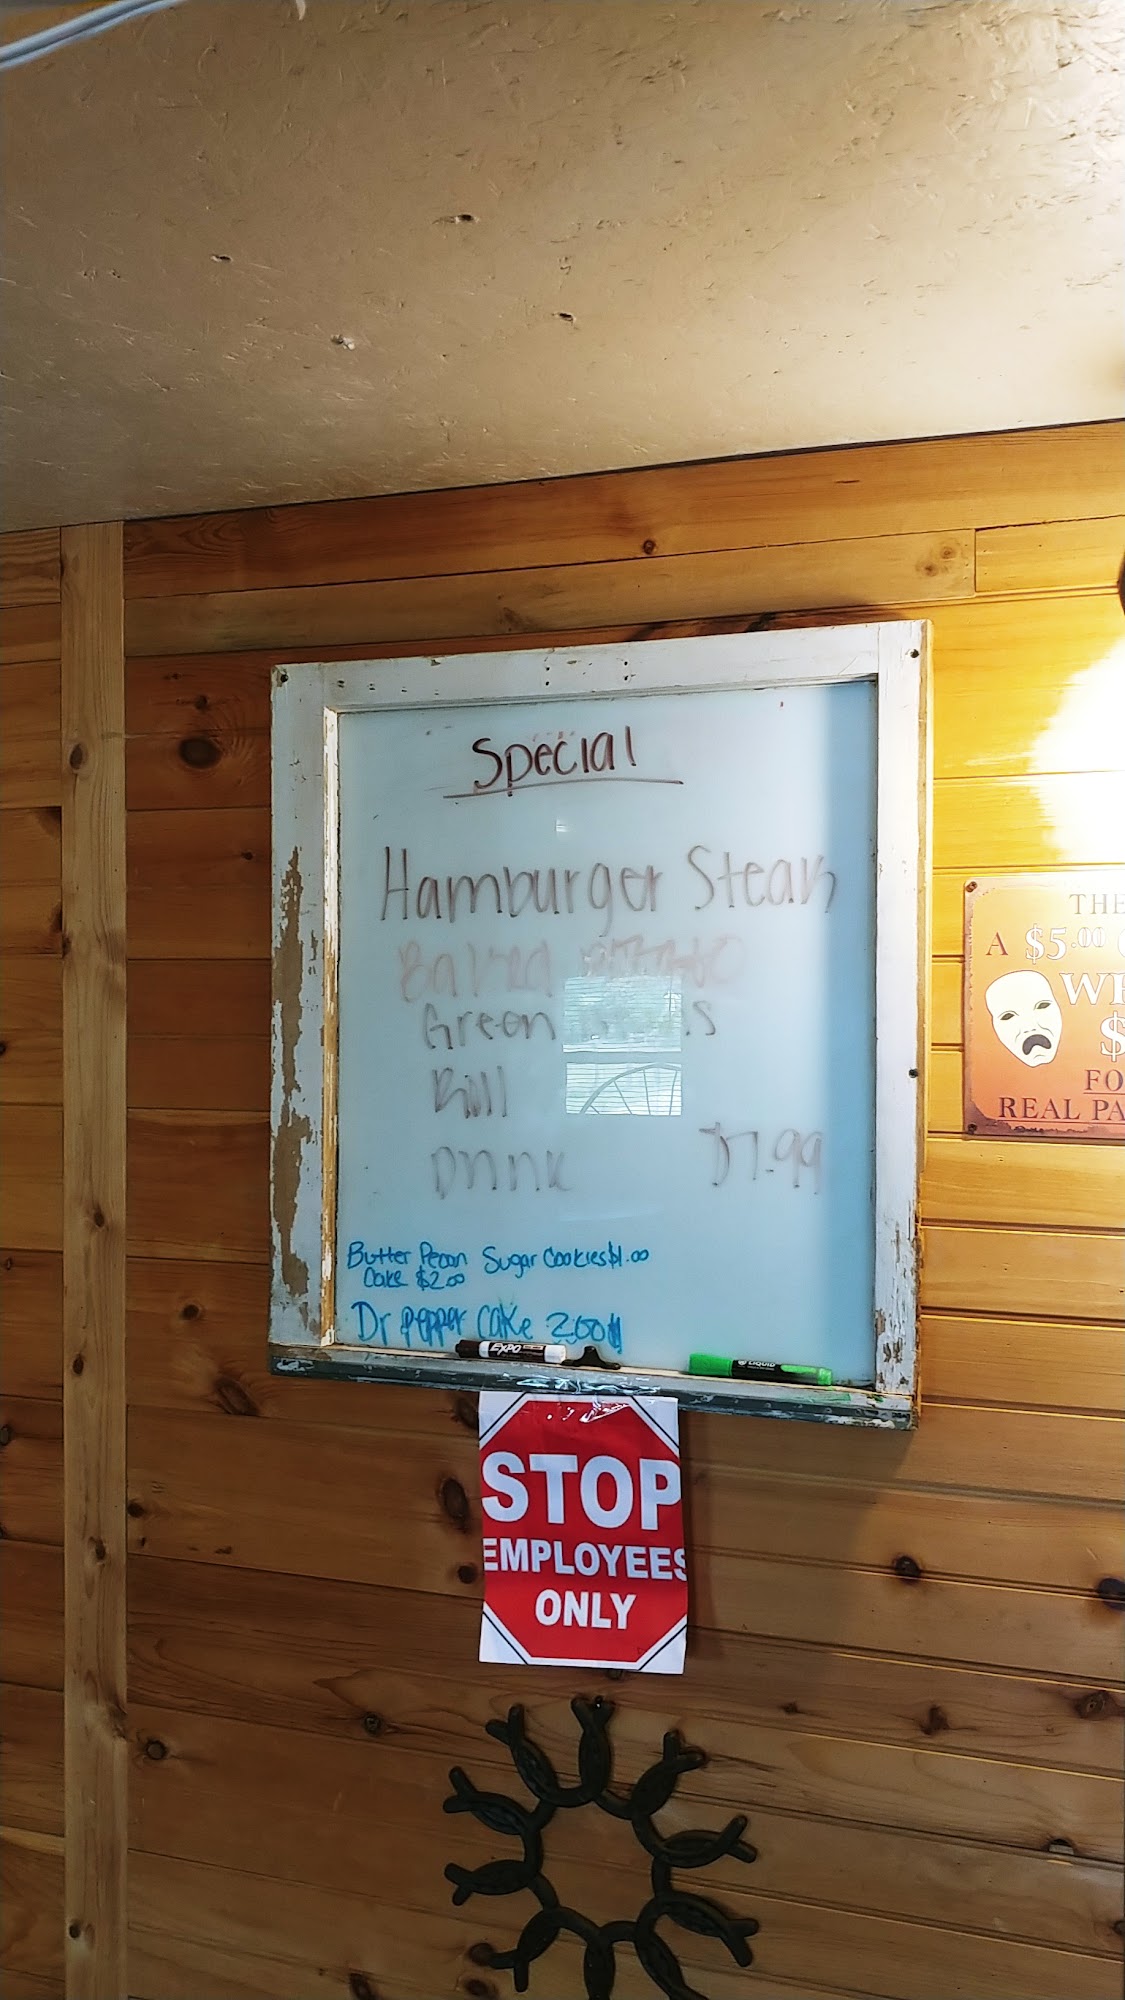 Special
Hamburger Steak
Baked
Green
Roll
Drink $7.99
Butter Pecan Sugar Cookies $1.00
Cake $2.00
Dr pepper cake 2.00
EXPO
LIQUID
STOP
EMPLOYEES
ONLY
THE
A $5.00
$
FO
REAL PA